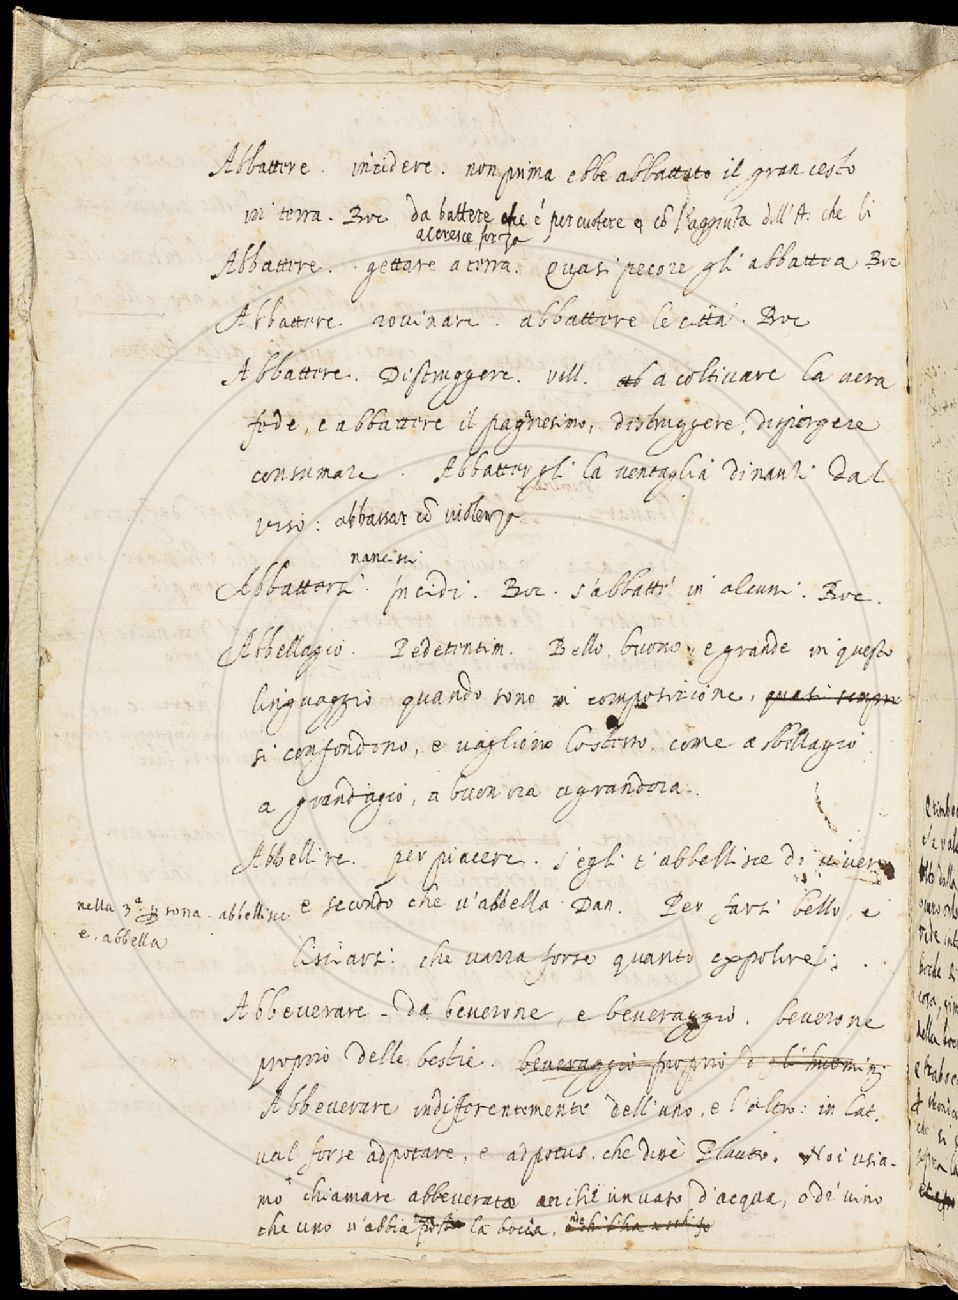 Abbattere. incidere. non prima ebbe abbattuto il gran cesto
in terra. Boc da battere che é percuotere e cõ l'aggiunta dell'A. che li
acoresce forza
Abbattere. gettare a terra. Quasi pecore gli abbattea Boc
Abbattere rovinare. abbattere le città. Boc
Abbattere. Distruggere. vill. a coltivare la vera
fede, e abbattere il paganesimo, distruggere, dispergere
consumare. Abbattergli la ventaglia dinanzi dal
viso: abbassar cõ violenza
nancisci
Abbattersi. Incidi. Boc. s'abbattè in alcuni. Boc.
Abbellagio. Pedetentim. Bello, buono, e grande in questo
linguaggio quando sono in composizione, quasi sempre
si confondono, e vagliono lo stesso, come a bellagio
a grand'agio, a buon'ora a grandora.
Abbellire. per piacere. s'egli t'abbellisce di
nella 3ª persona. abbellisce
e. abbella
e secondo che v'abbella Dan. Per farsi bello, e
lisciarsi: che varra forse quanto expolire:
Abbeverare - da beverone, e beveraggio. beverone
proprio delle bestie. beveraggio proprio d gli huomini
Abbeverare indifferentemente dell'uno, e l'altro: in lat.
val forse adpotare, e adpotus, che dice Plauto. Noi usia-
mo chiamare abbeverato anche un vaso d'acqua, o di vino
che uno v'abbia posto la bocca.